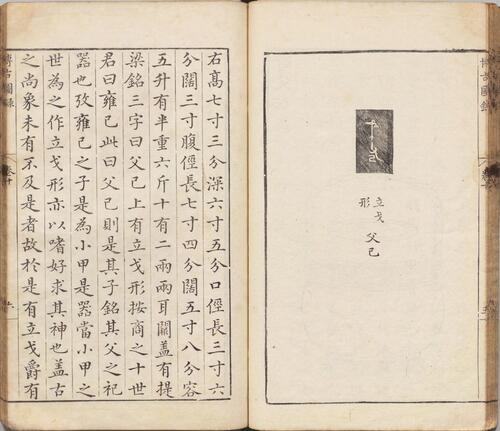 博古圖錄
立戈
形
父己
右高七寸三分深六寸五分口徑長三寸六
分闊三寸腹徑長七寸四分闊五寸八分容
五升有半重六斤十有二兩兩耳闕蓋有提
梁銘三字曰父己上有立戈形按商之十世
君曰雍己此曰父己則是其子銘其父之祀
器也攷雍己之子是為小甲是器當小甲之
世為之作立戈形亦以嗜好求其神也蓋古
之尚象未有不及是者故於是有立戈爵有
博古圖錄
卷十